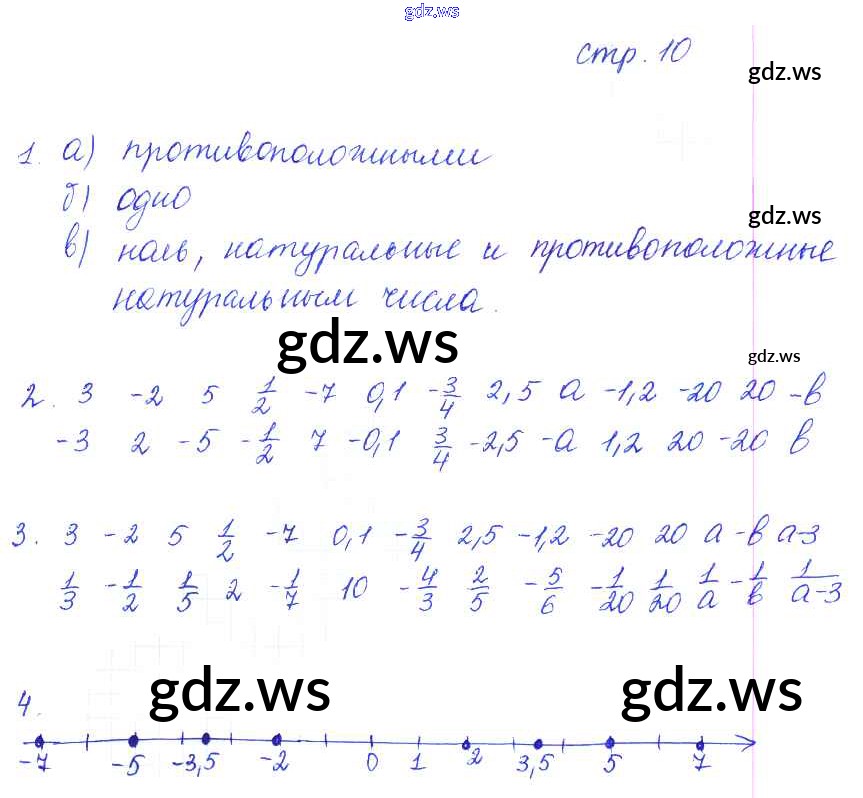 gdz.ws
стр. 10
gdz.ws
1. а) противоположными
б) одно
gdz.ws
в) ноль, натуральные и противоположные
натуральным числа.
gdz.ws
gdz.ws
2. 3 -2 5 1/2 -7 0,1 -3/4 2,5 а -1,2 -20 20 -в
-3 2 -5 -1/2 7 -0,1 3/4 -2,5 -а 1,2 20 -20 в
3. 3 -2 5 1/2 -7 0,1 -3/4 2,5 -1,2 -20 20 а -в а-3
1/3 -1/2 1/5 2 -1/7 10 -4/3 2/5 -5/6 -1/20 1/20 1/а -1/в 1/а-3
gdz.ws gdz.ws
4.
-7 -5 -3,5 -2 0 1 2 3,5 5 7